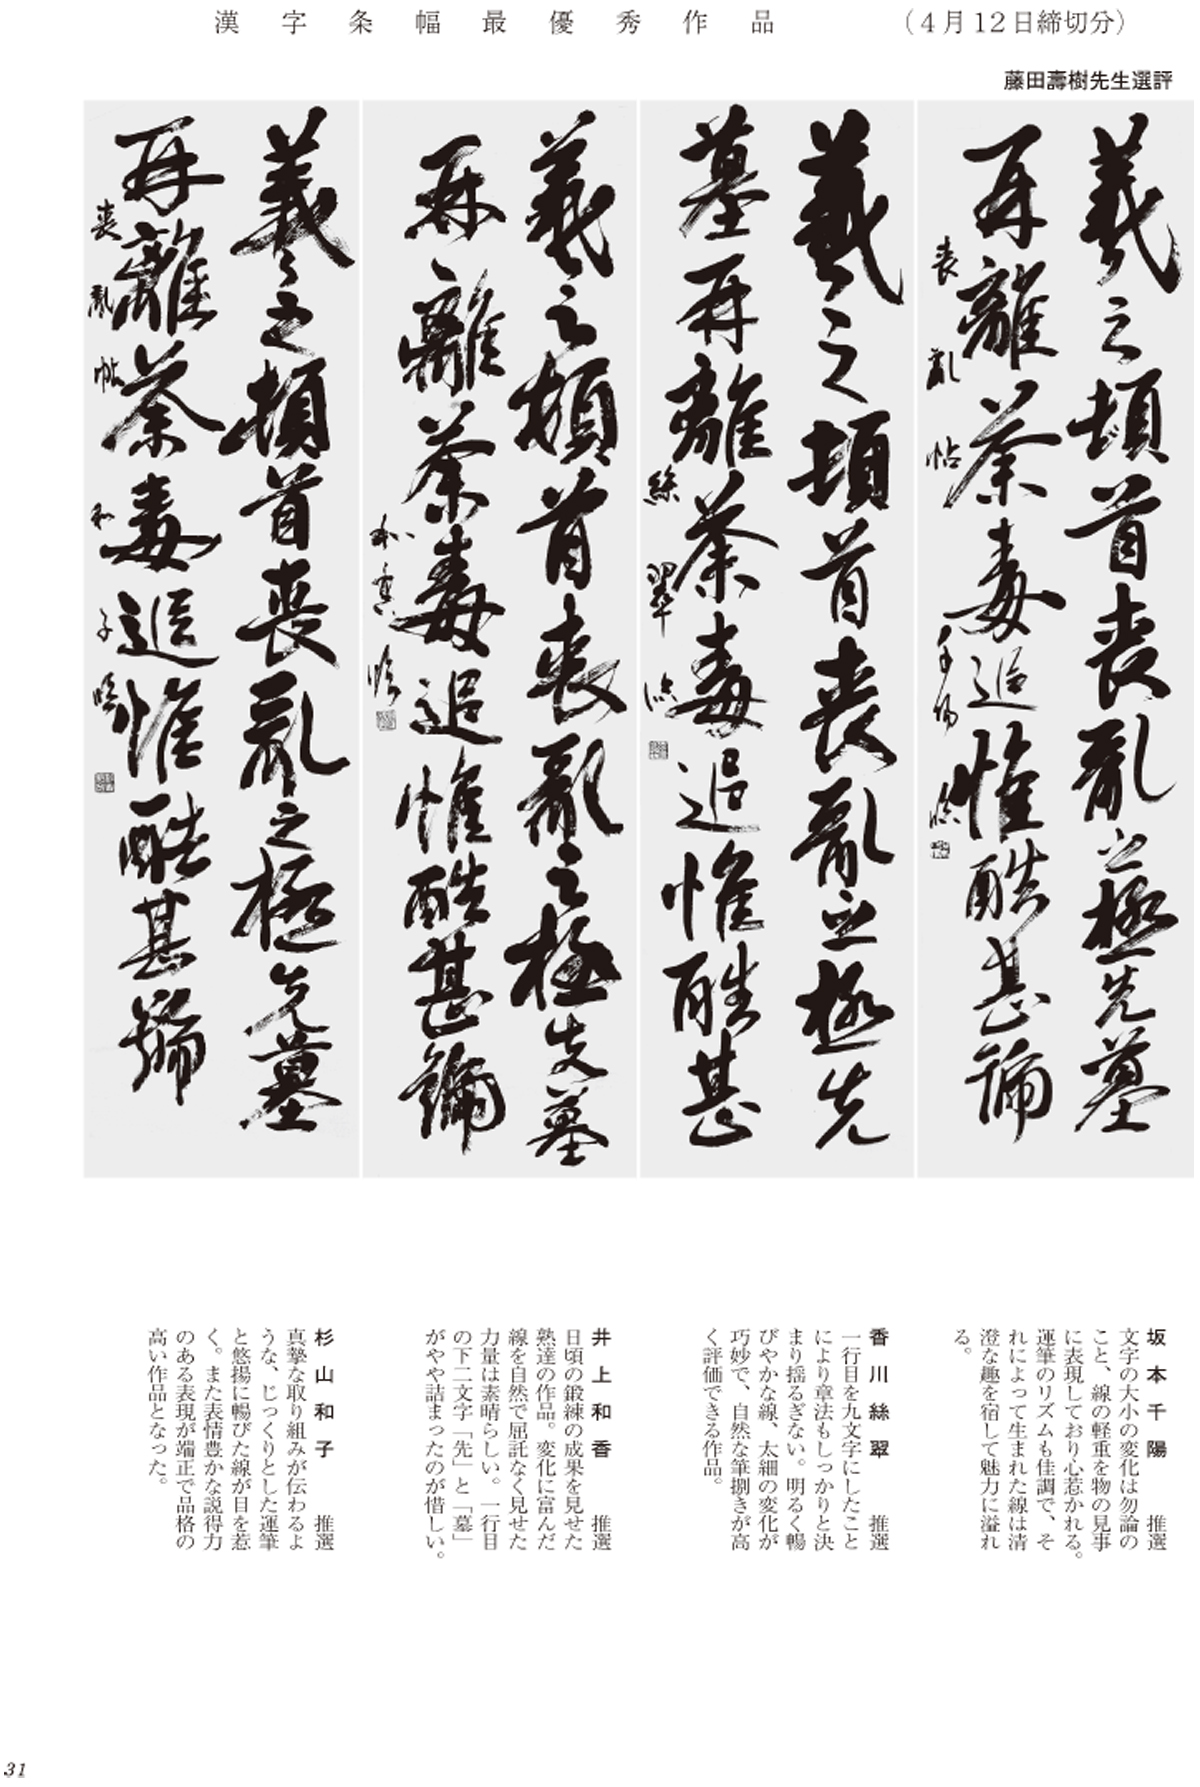 漢字条幅最優秀作品 （4月12日締切分）
藤田壽樹先生選評
羲之頓首喪亂之極先墓
再離荼毒追惟酷甚號
喪亂帖 千陽臨
羲之頓首喪亂之極先
墓再離荼毒追惟酷甚
絲翠臨
羲之頓首喪亂之極先墓
再離荼毒追惟酷甚號
和香臨
羲之頓首喪亂之極先墓
再離荼毒追惟酷甚號
喪亂帖 和子臨
坂本千陽 推選
文字の大小の変化は勿論の
こと、線の軽重を物の見事
に表現しており心惹かれる。
運筆のリズムも佳調で、そ
れによって生まれた線は清
澄な趣を宿して魅力に溢れ
る。
香川絲翠 推選
一行目を九文字にしたこと
により章法もしっかりと決
まり揺るぎない。明るく暢
びやかな線、太細の変化が
巧妙で、自然な筆捌きが高
く評価できる作品。
井上和香 推選
日頃の鍛練の成果を見せた
熟達の作品。変化に富んだ
線を自然で屈託なく見せた
力量は素晴らしい。一行目
の下二文字「先」と「墓」
がやや詰まったのが惜しい。
杉山和子 推選
真摯な取り組みが伝わるよ
うな、じっくりとした運筆
と悠揚に暢びた線が目を惹
く。また表情豊かな説得力
のある表現が端正で品格の
高い作品となった。
31